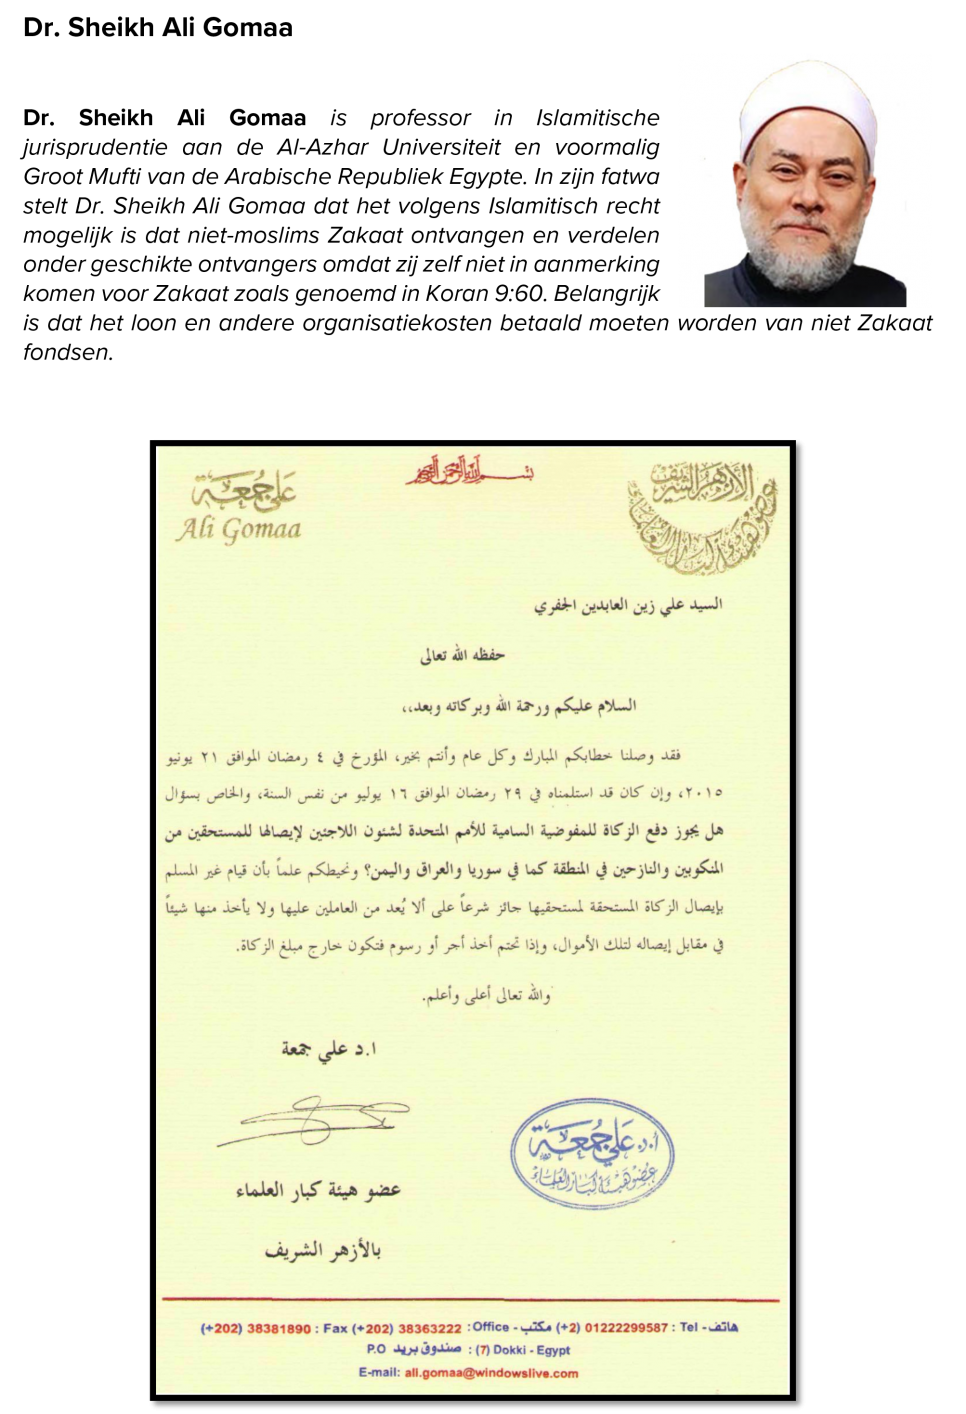 Dr. Sheikh Ali Gomaa
Dr. Sheikh Ali Gomaa is professor in Islamitische
jurisprudentie aan de Al-Azhar Universiteit en voormalig
Groot Mufti van de Arabische Republiek Egypte. In zijn fatwa
stelt Dr. Sheikh Ali Gomaa dat het volgens Islamitisch recht
mogelijk is dat niet-moslims Zakaat ontvangen en verdelen
onder geschikte ontvangers omdat zij zelf niet in aanmerking
komen voor Zakaat zoals genoemd in Koran 9:60. Belangrijk
is dat het loon en andere organisatiekosten betaald moeten worden van niet Zakaat
fondsen.
بسم الله الرحمن الرحيم
الأزهر الشريف
عضو هيئة كبار العلماء
علي جمعة
Ali Gomaa
السيد علي زين العابدين الجفري
حفظه الله تعالى
السلام عليكم ورحمة الله وبركاته وبعد،،
فقد وصلنا خطابكم المبارك وكل عام وأنتم بخير، المؤرخ في ٤ رمضان الموافق ٢١ يونيو
٢٠١٥، وإن كان قد استلمناه في ٢٩ رمضان الموافق ١٦ يوليو من نفس السنة، والخاص بسؤال
هل يجوز دفع الزكاة للمفوضية السامية للأمم المتحدة لشئون اللاجئين لإيصالها للمستحقين من
المنكوبين والنازحين في المنطقة كما في سوريا والعراق واليمن؟ ونحيطكم علماً بأن قيام غير المسلم
بإيصال الزكاة المستحقة لمستحقيها جائز شرعاً على ألا يُعد من العاملين عليها ولا يأخذ منها شيئاً
في مقابل إيصاله لتلك الأموال، وإذا تحتم أخذ أجر أو رسوم فتكون خارج مبلغ الزكاة.
والله تعالى أعلى وأعلم.
ا.د علي جمعة
أ.د. علي جمعة
عضو هيئة كبار العلماء
عضو هيئة كبار العلماء
بالأزهر الشريف
هاتف - Tel : (+2) 01222299587 مكتب - Office: (+202) 38363222 Fax : (+202) 38381890
P.O صندوق بريد : (7) Dokki - Egypt
E-mail: ali.gomaa@windowslive.com